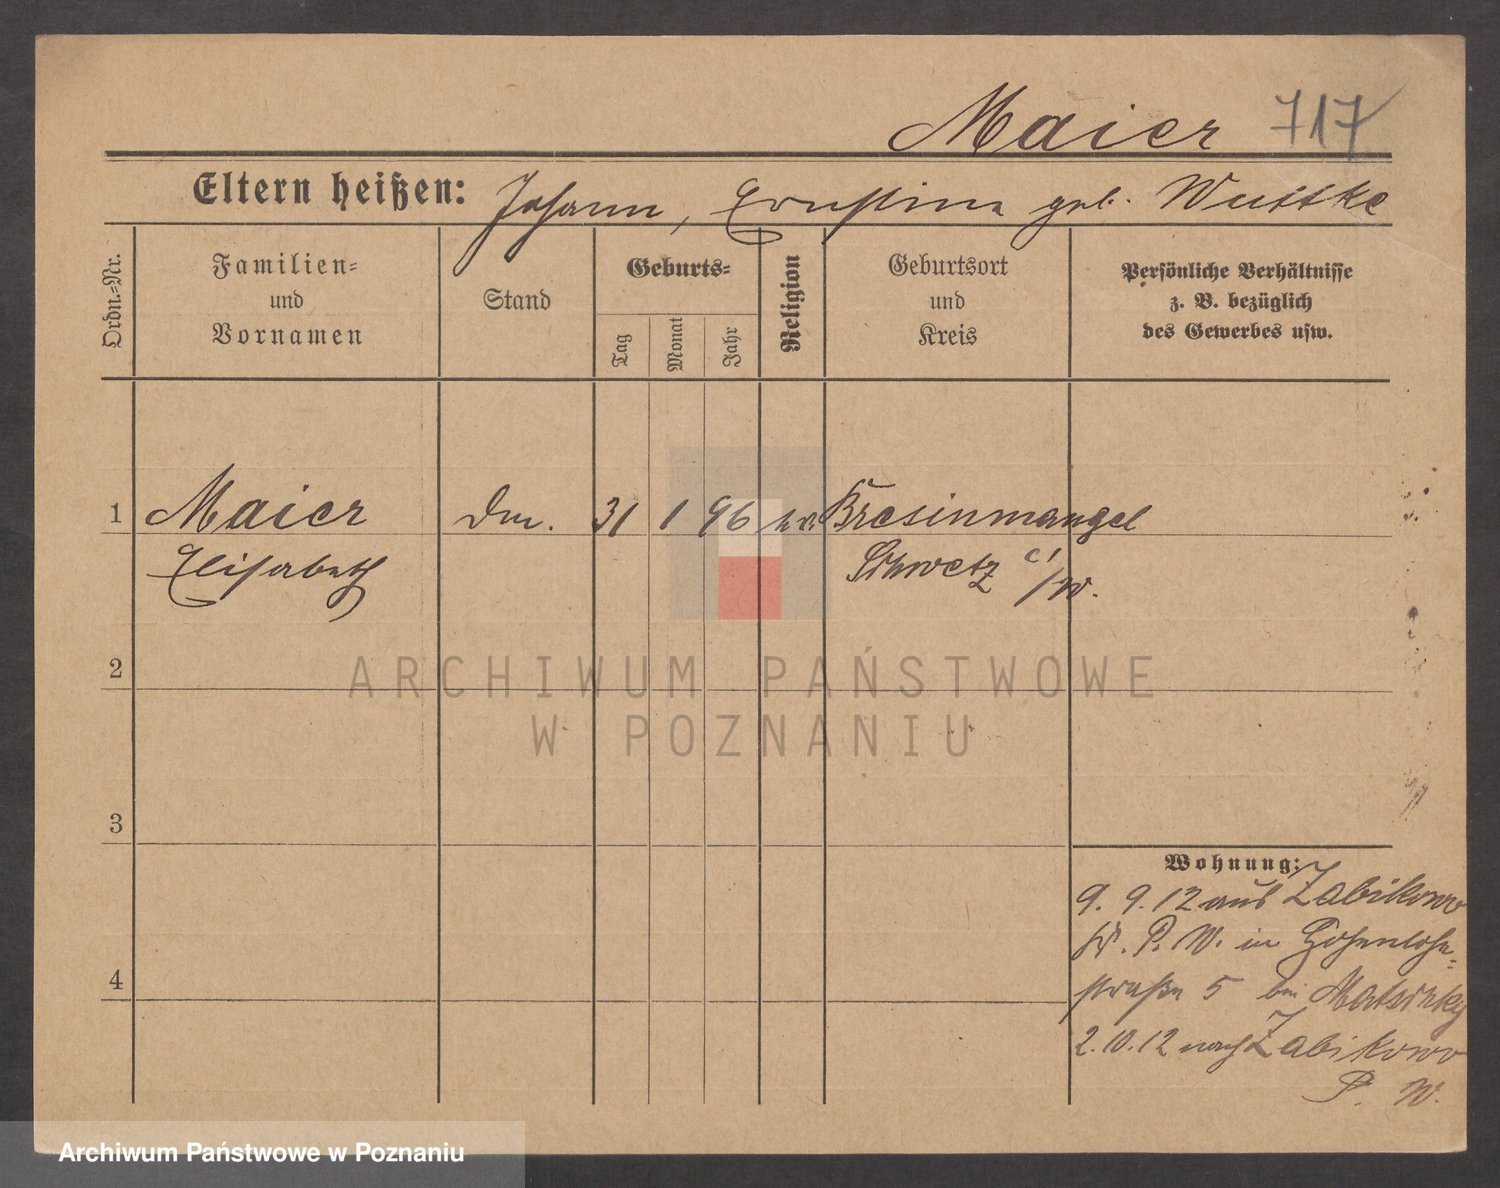 Maier 717
Eltern heißen: Johann, Ernstine geb. Wuttke
Ordn.-Nr.
Familien-
und
Vornamen
Stand
Geburts-
Tag
Monat
Jahr
Religion
Geburtsort
und
Kreis
Persönliche Verhältnisse
z. B. bezüglich
des Gewerbes usw.
1 Maier 31 1 96 Bresinmangel
Elisabeth Schwetz a/W.
2
ARCHIWUM PAŃSTWOWE
W POZNANIU
3
4
Wohnung:
9. 9. 12 aus Zabikowo
P. W. in Hohenlohe-
straße 5 bei
2. 10. 12 nach Zabikowo
P. W.
Archiwum Państwowe w Poznaniu